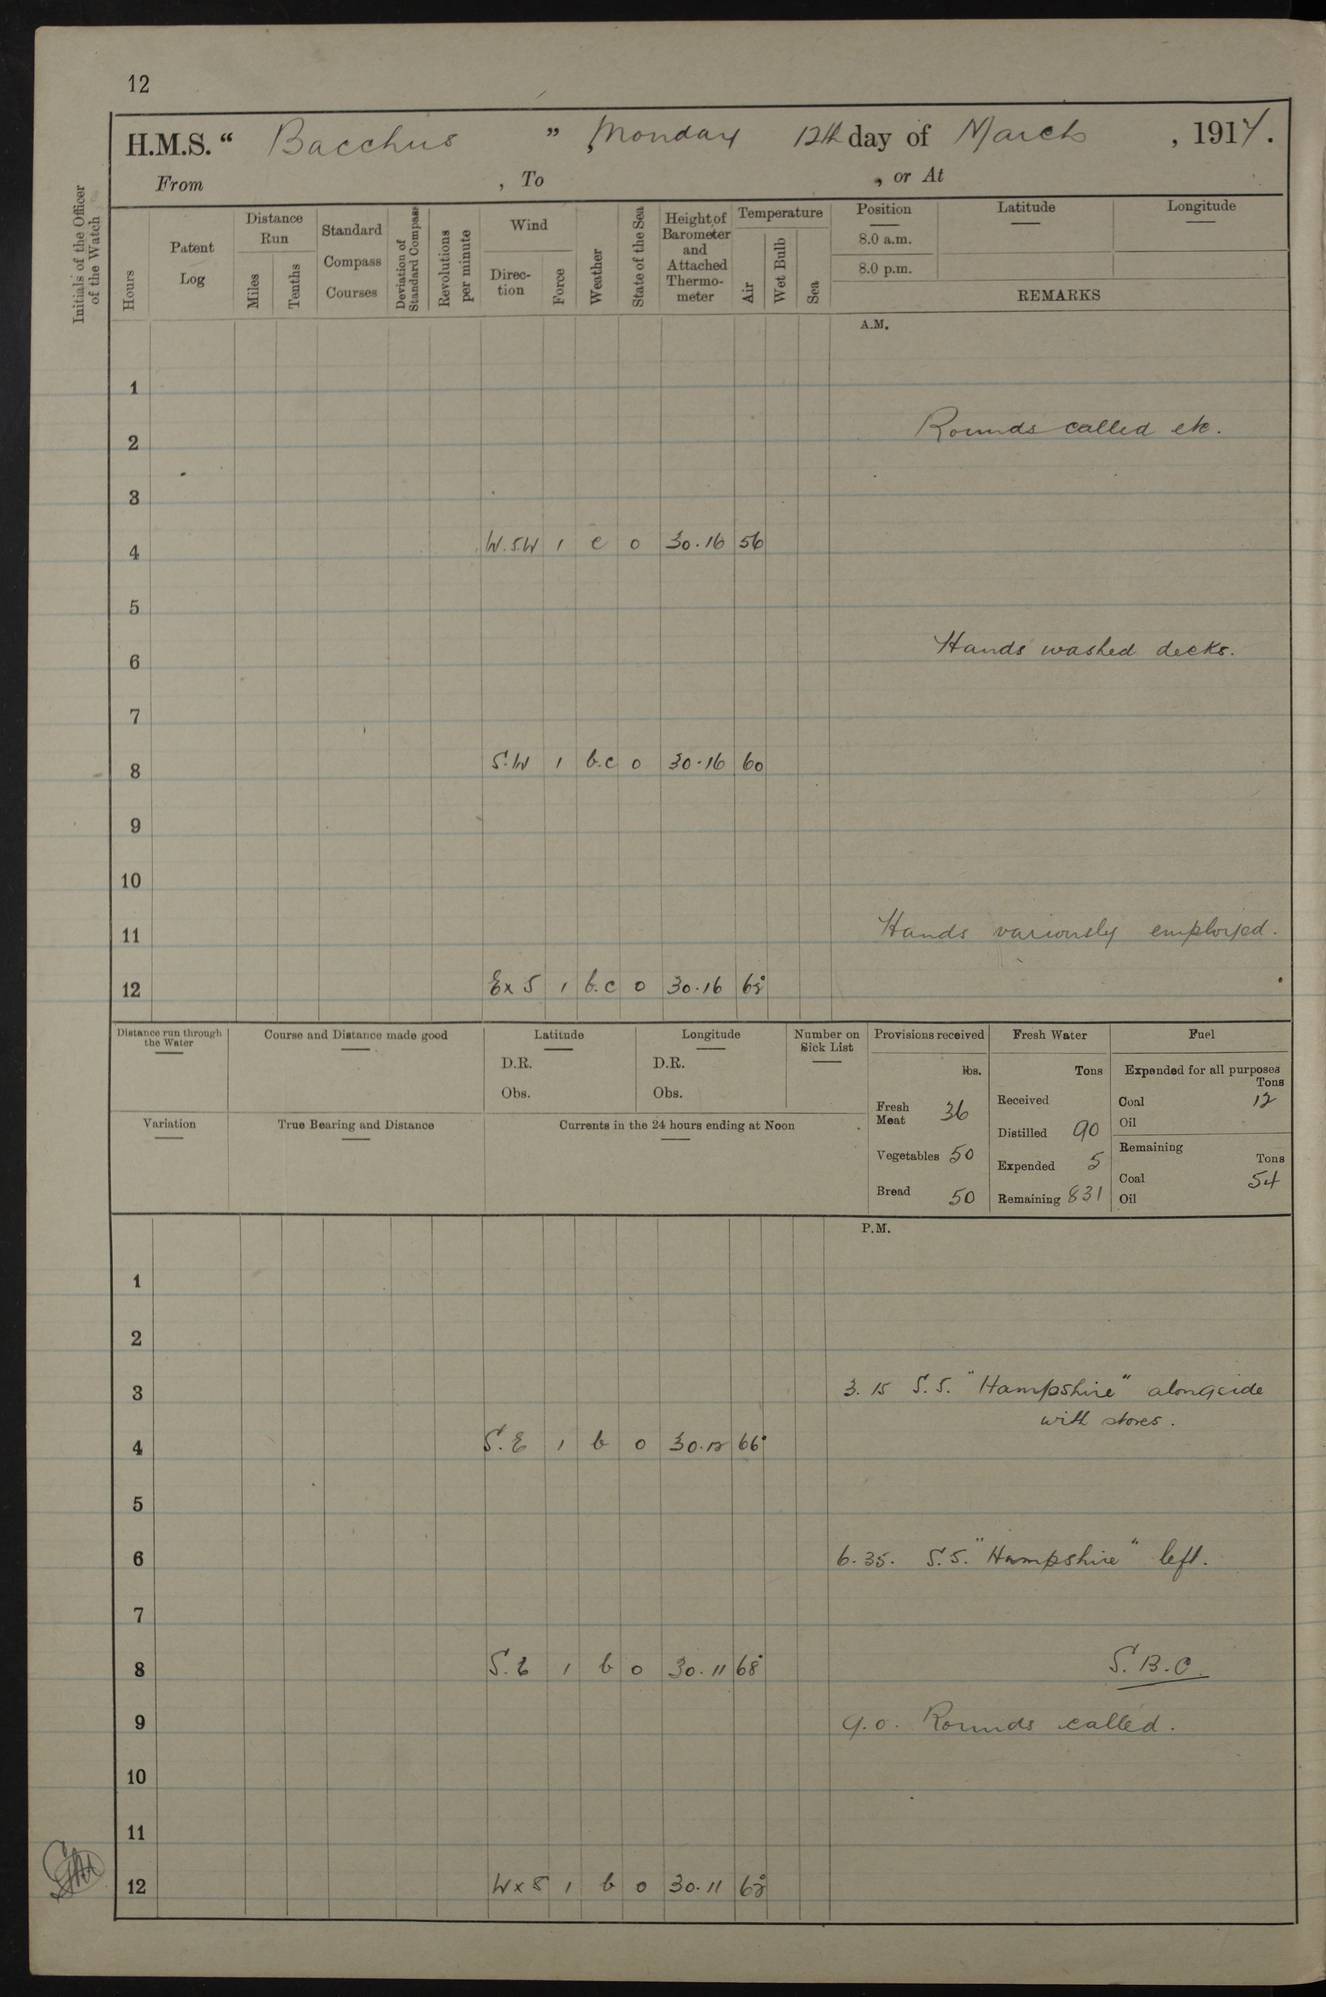 12
H.M.S. “ Bacchus ” , Monday 12th day of March , 1917.
From , To , or At
Initials of the Officer of the Watch
Hours
Patent Log
Distance Run
Miles
Tenths
Standard Compass Courses
Deviation of Standard Compass
Revolutions per minute
Wind
Direc-tion
Force
Weather
State of the Sea
Height of Barometer and Attached Thermo-meter
Temperature
Air
Wet Bulb
Sea
Position
8.0 a.m.
8.0 p.m.
Latitude
Longitude
REMARKS
A.M.
1
2 Rounds called etc.
3
4 W.SW 1 c 0 30.16 56
5
6 Hands washed decks.
7
8 S.W 1 b.c 0 30.16 60
9
10
11 Hands variously employed.
12 Ex S 1 b.c 0 30.16
Distance run through the Water
Course and Distance made good
Latitude
D.R.
Obs.
Longitude
D.R.
Obs.
Number on Sick List
Provisions received
lbs.
Fresh Meat 36
Vegetables 50
Bread 50
Fresh Water
Tons
Received
Distilled 90
Expended 5
Remaining 831
Fuel
Expended for all purposes
Tons
Coal 12
Oil
Remaining
Tons
Coal 54
Oil
Variation
True Bearing and Distance
Currents in the 24 hours ending at Noon
P.M.
1
2
3 3.15 S.S. "Hampshire" alongside
with stores.
4 S.E 1 b 0 30.12 66°
5
6 6.35. S.S. "Hampshire" left.
7
8 S.E 1 b 0 30.11 68° S.B.C.
9 9.0. Rounds called.
10
11
12 W x S 1 b 0 30.11